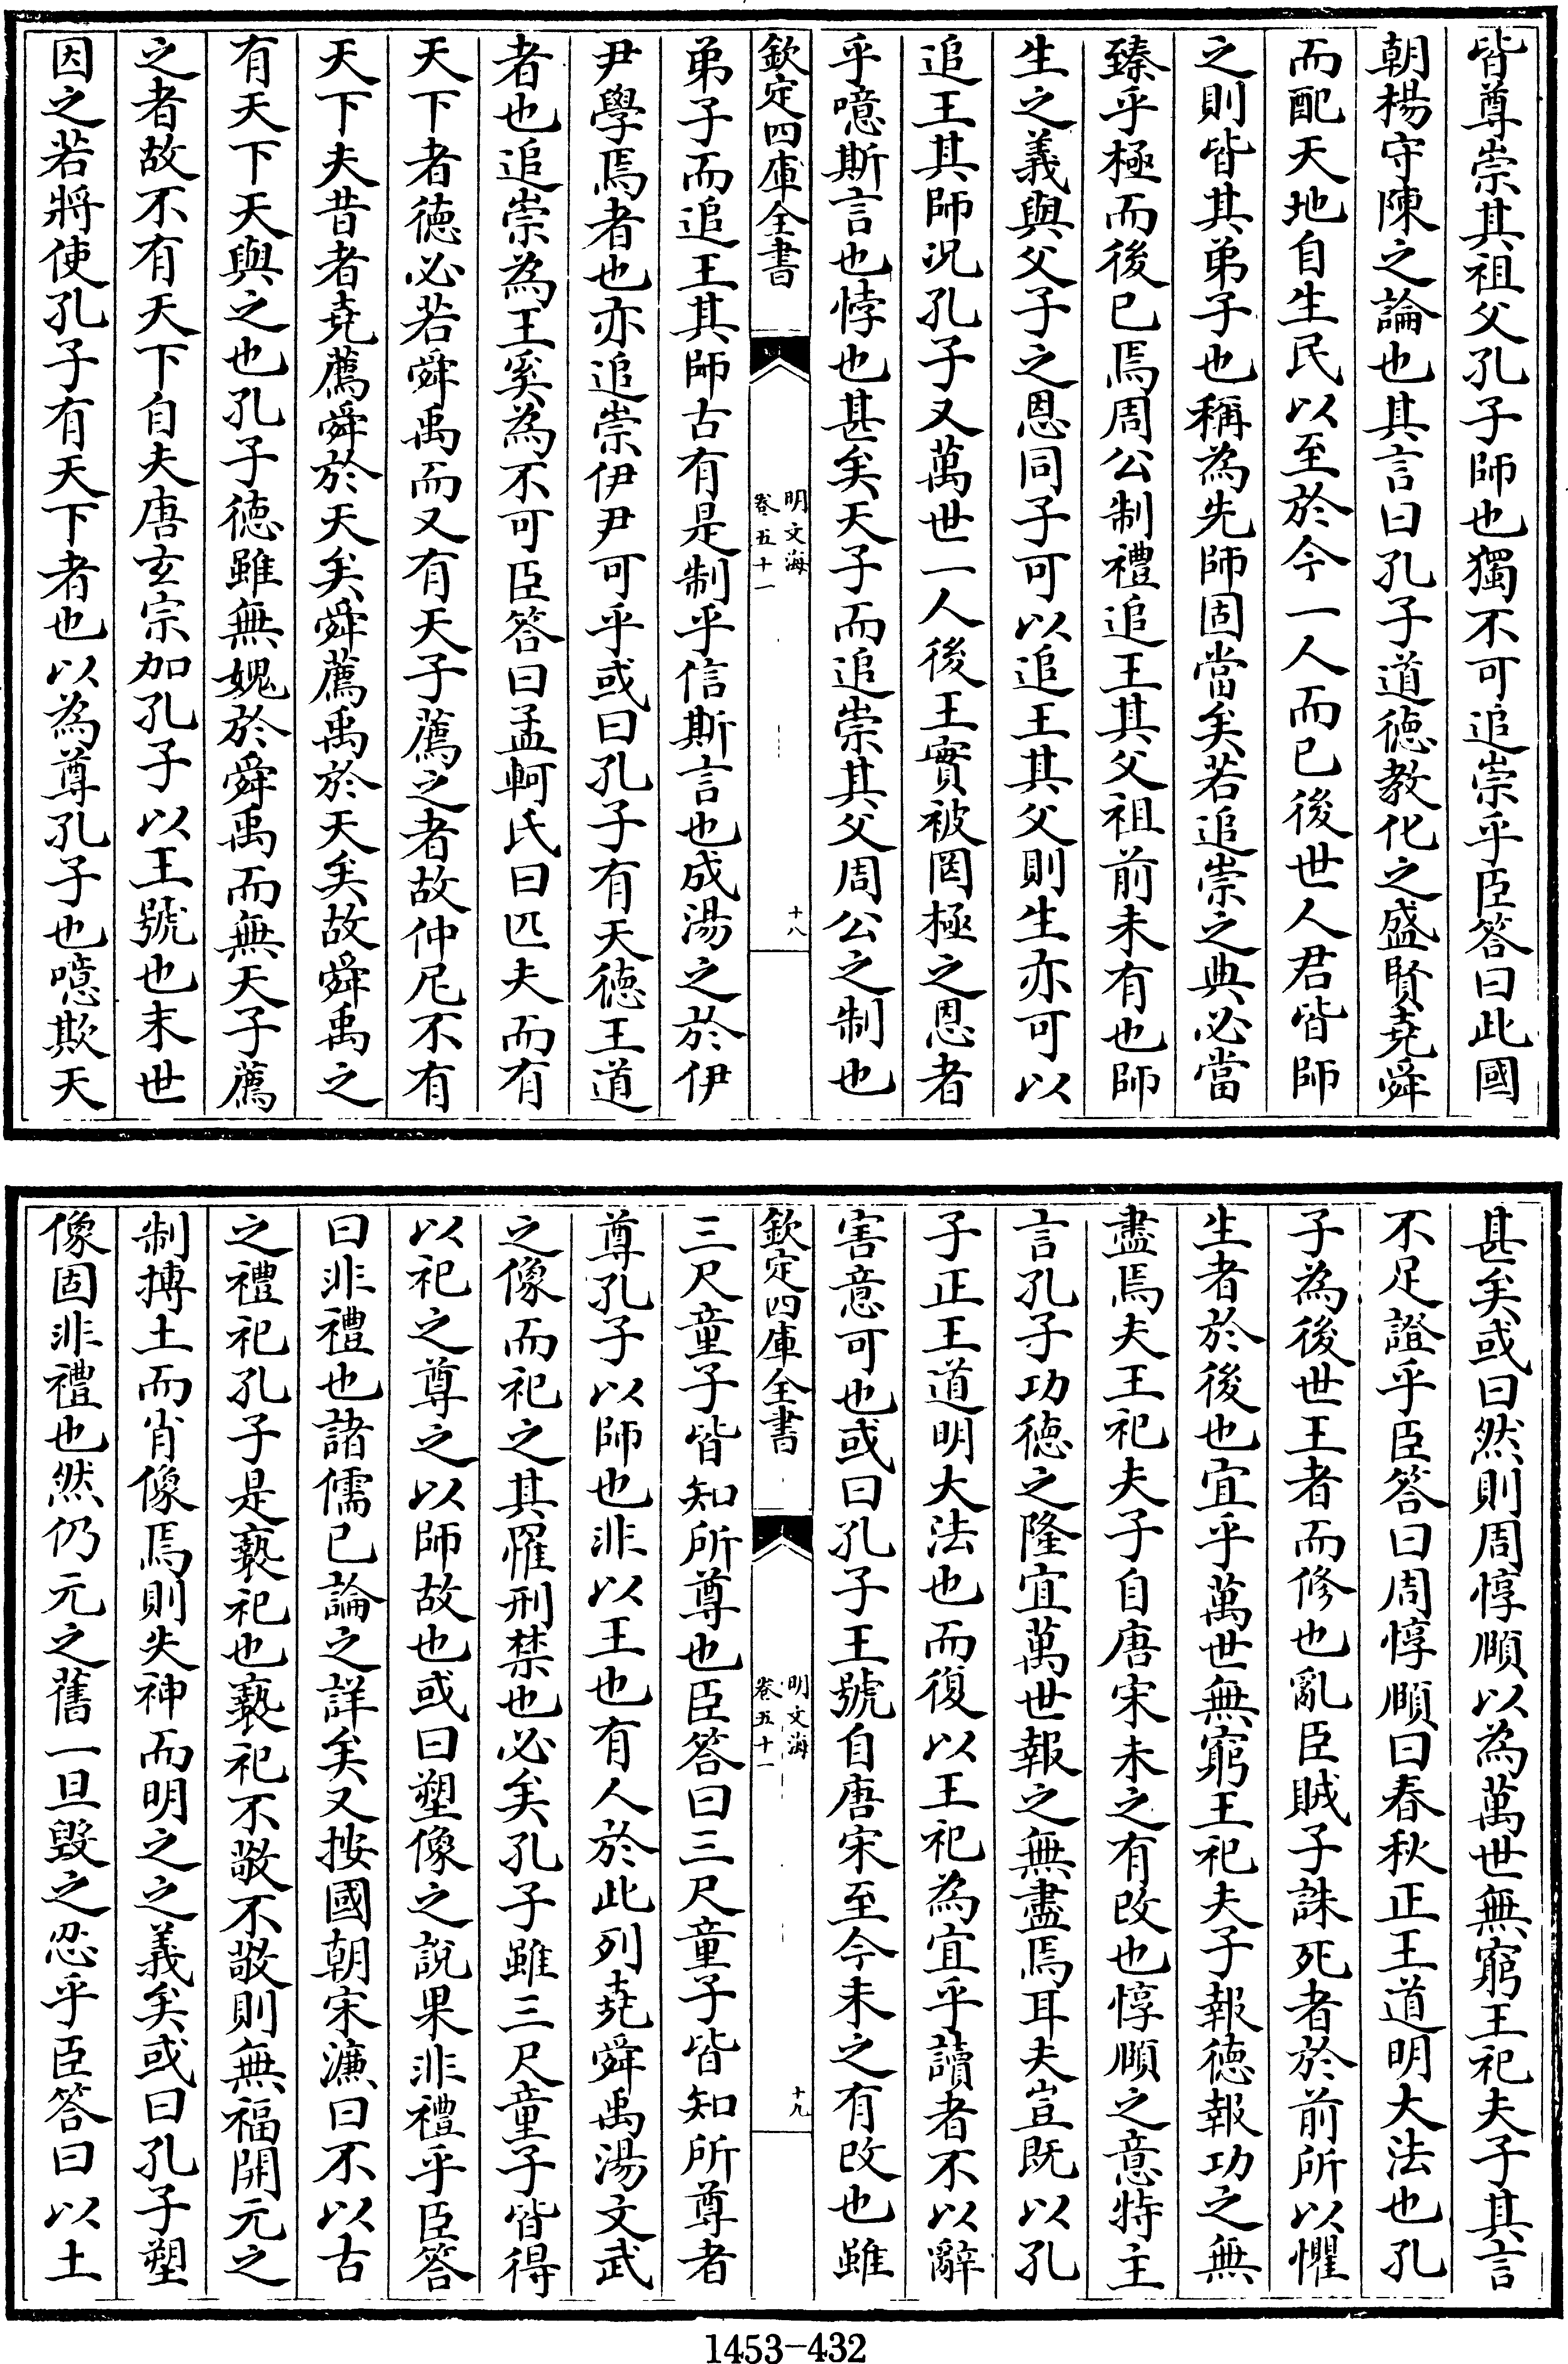 皆尊崇其祖父孔子師也獨不可追崇乎臣答曰此國
朝楊守陳之論也其言曰孔子道德教化之盛賢堯舜
而配天地自生民以至於今一人而已後世人君皆師
之則皆其弟子也稱為先師固當矣若追崇之典必當
臻乎極而後已焉周公制禮追王其父祖前未有也師
生之義與父子之恩同子可以追王其父則生亦可以
追王其師況孔子又萬世一人後王實被罔極之恩者
乎噫斯言也悖也甚矣天子而追崇其父周公之制也
欽定四庫全書
明文海
卷五十一
十八
弟子而追王其師古有是制乎信斯言也成湯之於伊
尹學焉者也亦追崇伊尹可乎或曰孔子有天德王道
者也追崇為王奚為不可臣答曰孟軻氏曰匹夫而有
天下者德必若舜禹而又有天子薦之者故仲尼不有
天下夫昔者堯薦舜於天矣舜薦禹於天矣故舜禹之
有天下天與之也孔子德雖無媿於舜禹而無天子薦
之者故不有天下自夫唐玄宗加孔子以王號也末世
因之若將使孔子有天下者也以為尊孔子也噫欺天
甚矣或曰然則周惇頤以為萬世無窮王祀夫子其言
不足證乎臣答曰周惇頤曰春秋正王道明大法也孔
子為後世王者而修也亂臣賊子誅死者於前所以懼
生者於後也宜乎萬世無窮王祀夫子報德報功之無
盡焉夫王祀夫子自唐宋未之有改也惇頤之意特主
言孔子功德之隆宜萬世報之無盡焉耳夫豈既以孔
子正王道明大法也而復以王祀為宜乎讀者不以辭
害意可也或曰孔子王號自唐宋至今未之有改也雖
欽定四庫全書
明文海
卷五十一
十九
三尺童子皆知所尊也臣答曰三尺童子皆知所尊者
尊孔子以師也非以王也有人於此列堯舜禹湯文武
之像而祀之其罹刑禁也必矣孔子雖三尺童子皆得
以祀之尊之以師故也或曰塑像之說果非禮乎臣答
曰非禮也諸儒已論之詳矣又按國朝宋濂曰不以古
之禮祀孔子是褻祀也褻祀不敬不敬則無福開元之
制摶土而肖像焉則失神而明之之義矣或曰孔子塑
像固非禮也然仍元之舊一旦毀之忍乎臣答曰以土
1453-432